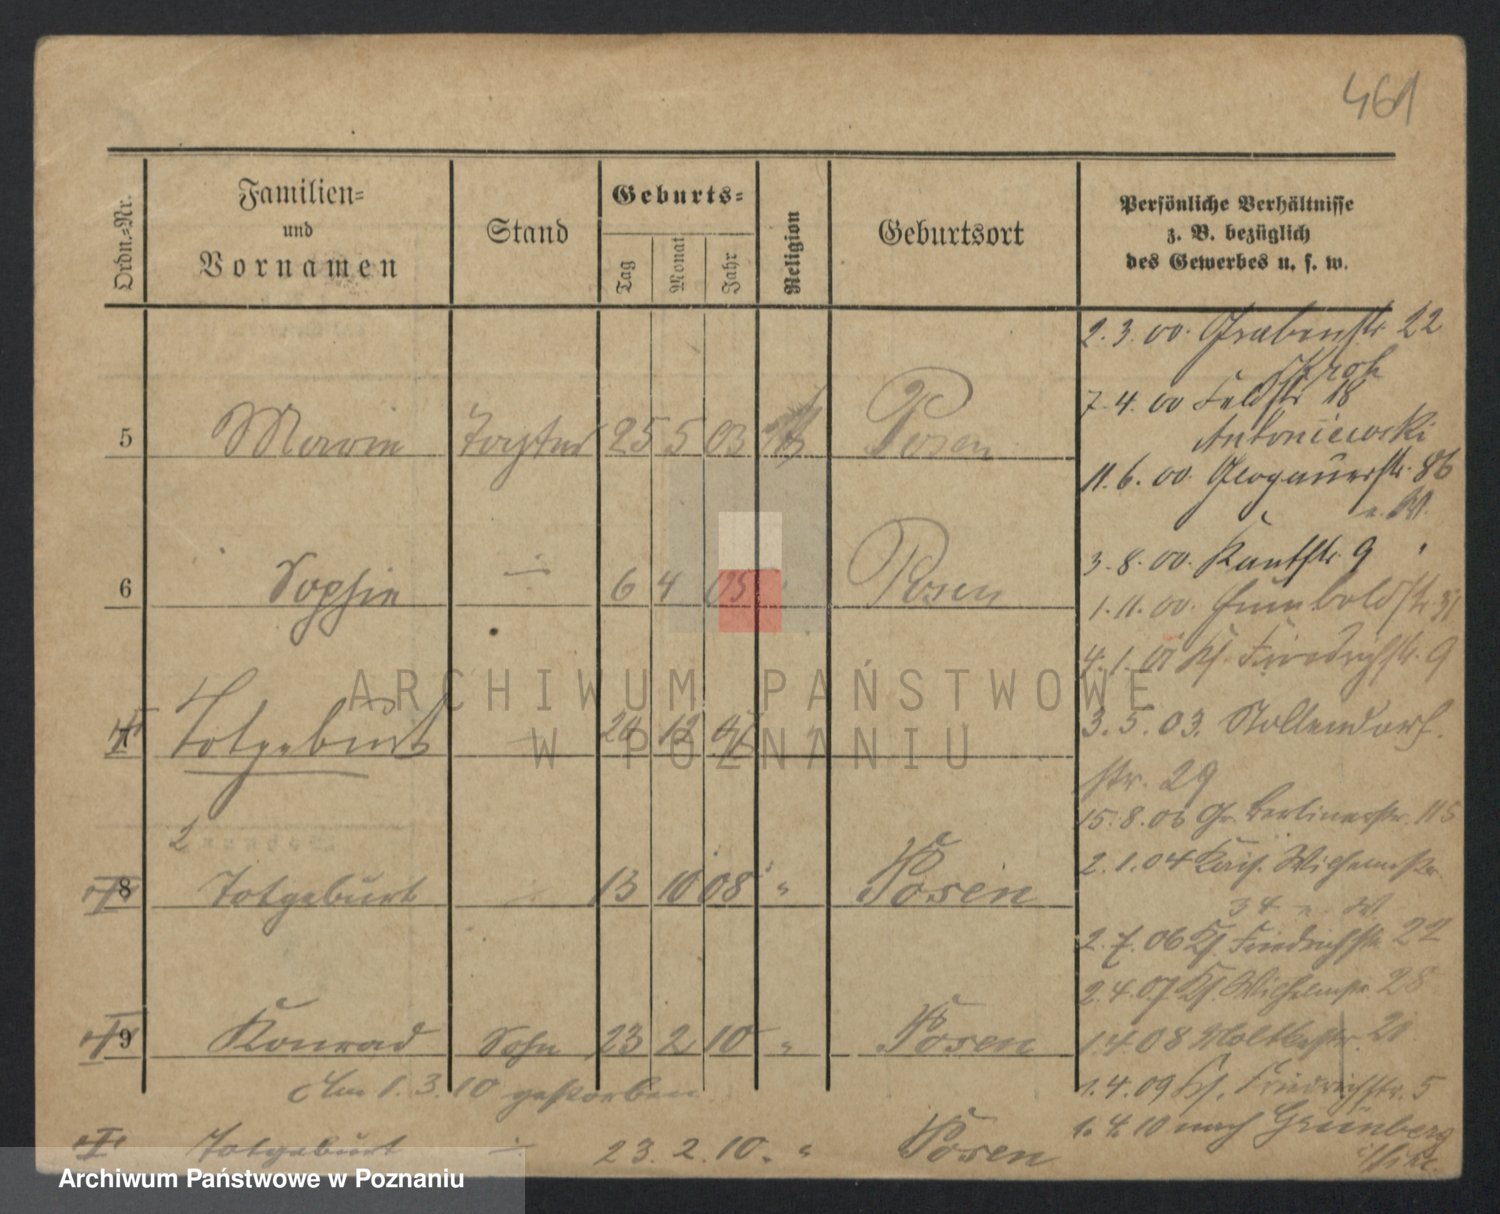 461
Ordn.-Nr.
Familien-
und
Vornamen
Stand
Geburts-
Tag
Monat
Jahr
Religion
Geburtsort
Persönliche Verhältnisse
z. B. bezüglich
des Gewerbes u. s. w.
5 Maria Tochter 25 5 03 Posen
6 Sophie 6 4 05 Posen
7 Totgeburt 12
2
8 Totgeburt 13 10 08 " Posen
9 Konrad Sohn 23 2 10 " Posen
Am 1. 3. 10 gestorben
Totgeburt 23. 2. 10. " Posen
2. 3. 00. Grabenstr 22
7. 4. 00 Feldstr 18
Antoniewski
11. 6. 00. Glogauerstr. 86
3. 8. 00. Kantstr. 9 "
1. 11. 00. Humboldtstr 31
4. 1. 01 Ks. Friedrichstr. 9
3. 5. 03. Nollendorf.
str. 29
15. 8. 03 Gr. Berlinerstr. 115
2. 1. 04 Kais. Wilhelmstr.
34 e. W.
2. 7. 06 Ks. Friedrichstr. 22
2. 4. 07 Ks. Wilhelmstr. 28
1. 4. 08 Moltkestr. 21
1. 4. 09 Ks. Friedrichstr. 5
1. 4. 10 nach Grünberg
i/Schl.
ARCHIWUM PAŃSTWOWE
W POZNANIU
Archiwum Państwowe w Poznaniu